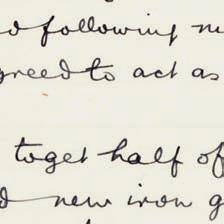 d following m
greed to act as
to get half of
d new iron g